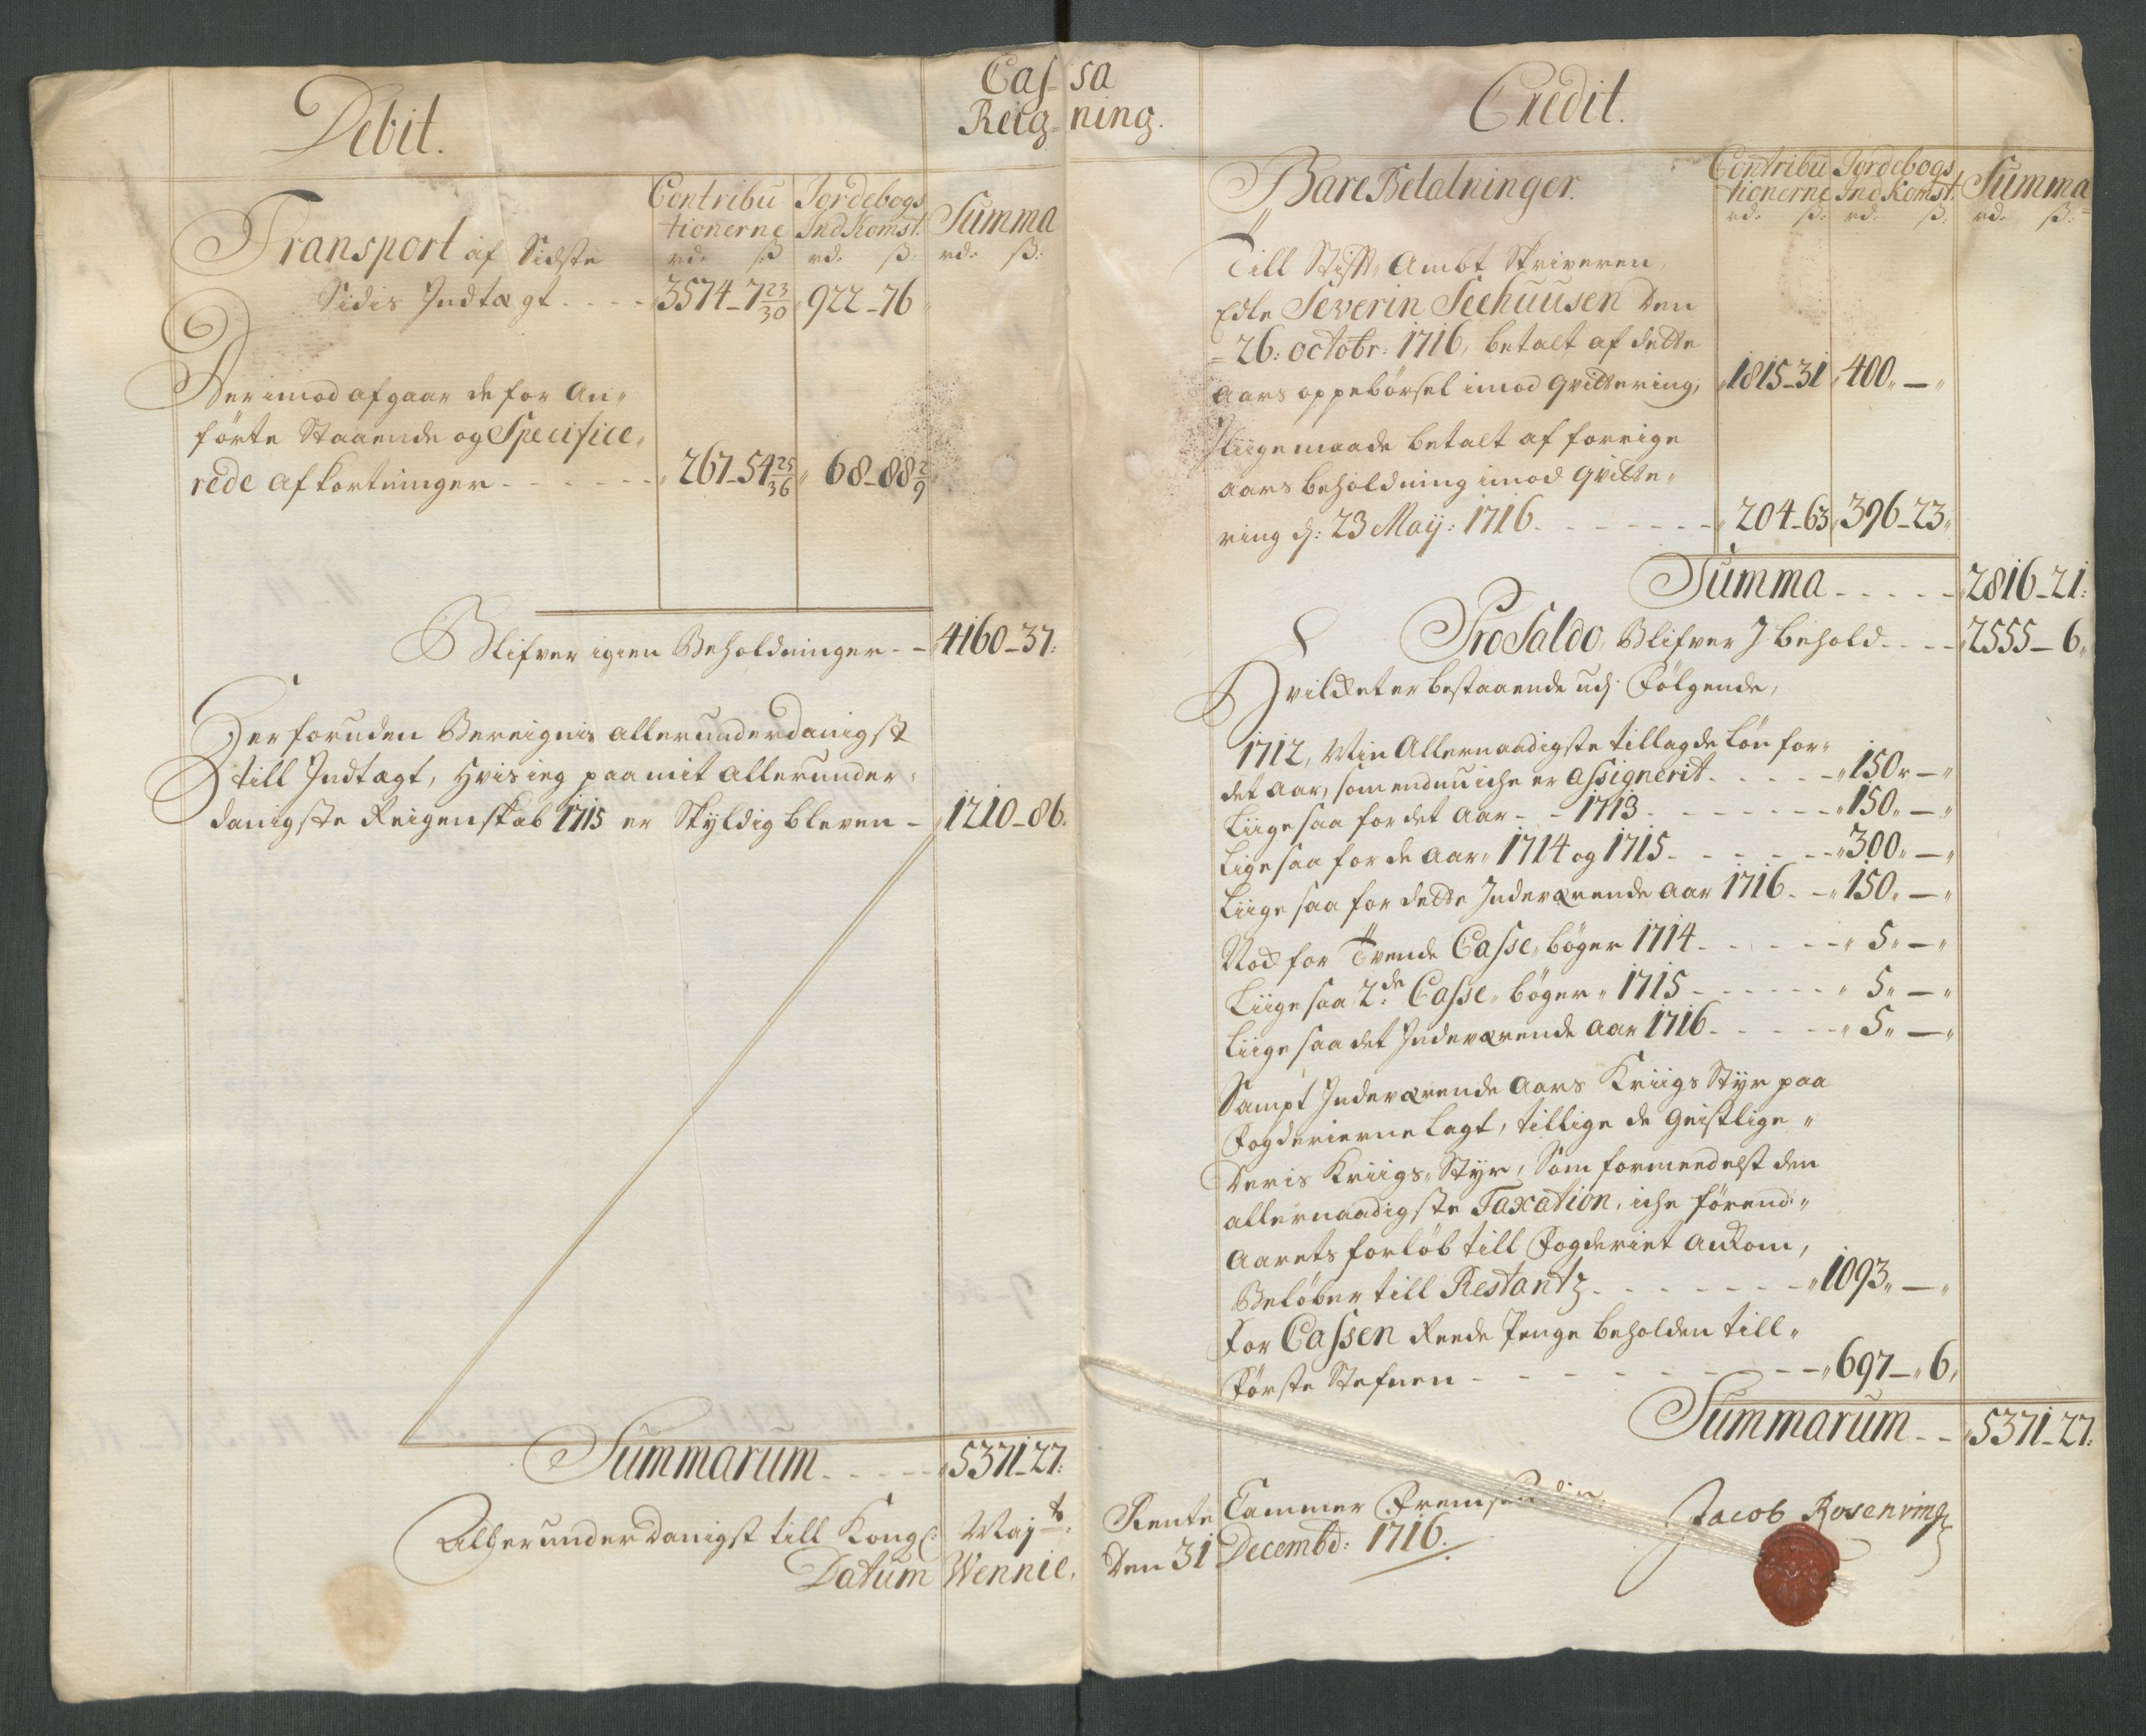 Cas- sa
Reig- ning.
Debit.
Contribu
tionerne
rd. ß
Jordebogs
IndKomst.
rd. ß:
Summa
rd. ß:
Transport af Sidste
Sidis Indtægt - - - - 3574-7 23/30 922-76
Derimod afgaar de for An-
förte Staaende og Specifice-
rede afkortninger - - - - - - 267-54 25/36 68-88 2/9
Blifver igien Beholdninger - - 4160-37:
Her foruden Bereignis allerunderdanigst
till Indtægt, Hvis ieg paa mit allerunder-
danigste Reigenskab 1715 er Skyldig bleven - 1210-86.
Summarum - - - - - 5371-27:
Allerunderdanigst till Kongl: Maj.ts
Datum Wennie,
Credit.
Bare Betalninger.
Contribu
tionerne
rd. ß:
Jordebogs
IndKomst.
rd. ß:
Summa
rd. ß:
Till Stift Ambt Skriveren,
Edle Severin Seehuusen Den
26: octobr: 1716, betalt af dette
aars oppebörsel imod qvittering, 1815-31 400„-„
Iliigemaade betalt af forrige
aars beholdning imod qvitte-
ring d: 23 Maij: 1716 - - - - - - - 204-63 396-23„
Summa - - - - - 2816-21:
Pro Saldo, Blifver I behold - - - - 2555-6„
Hvilket er bestaaende udj Fölgende,
1712, Min Allernaadigste tillagde Lön for-
det aar, som endnu iche er assignerit - - - - - 150„-„
Liige saa for det aar - - 1713 - - - - - - - 150„-„
Lige saa for de aar„ 1714 og 1715 - - - - - - 300„-„
Liige saa for dette Indeværende aar 1716 - - 150„-„
Nock for Tvende Casse„ böger 1714 - - - - - 5„-„
Liige saa 2de Casse„ böger„ 1715 - - - - - - 5„-„
Liige saa det Indeværende aar 1716 - - - - - 5„-„
Sampt Indeværende aars Kriigs Styr paa
Fogderierne Lagt, tillige de Geistlige„
Deris Kriigs„ Styr, Som formedelst den
allernaadigste Taxation, iche förend„
aarets forlöb till Fogderiet ankom,
Belöber till Restantz - - - - - - - 1093„-„
For Cassen Reede Penge beholden till„
Förste Stefnen - - - - - - - - 697-„6„
Summarum - - 5371-27:
Rente Cammer
Den 31 Decembd: 1716.
Jacob Rosenving